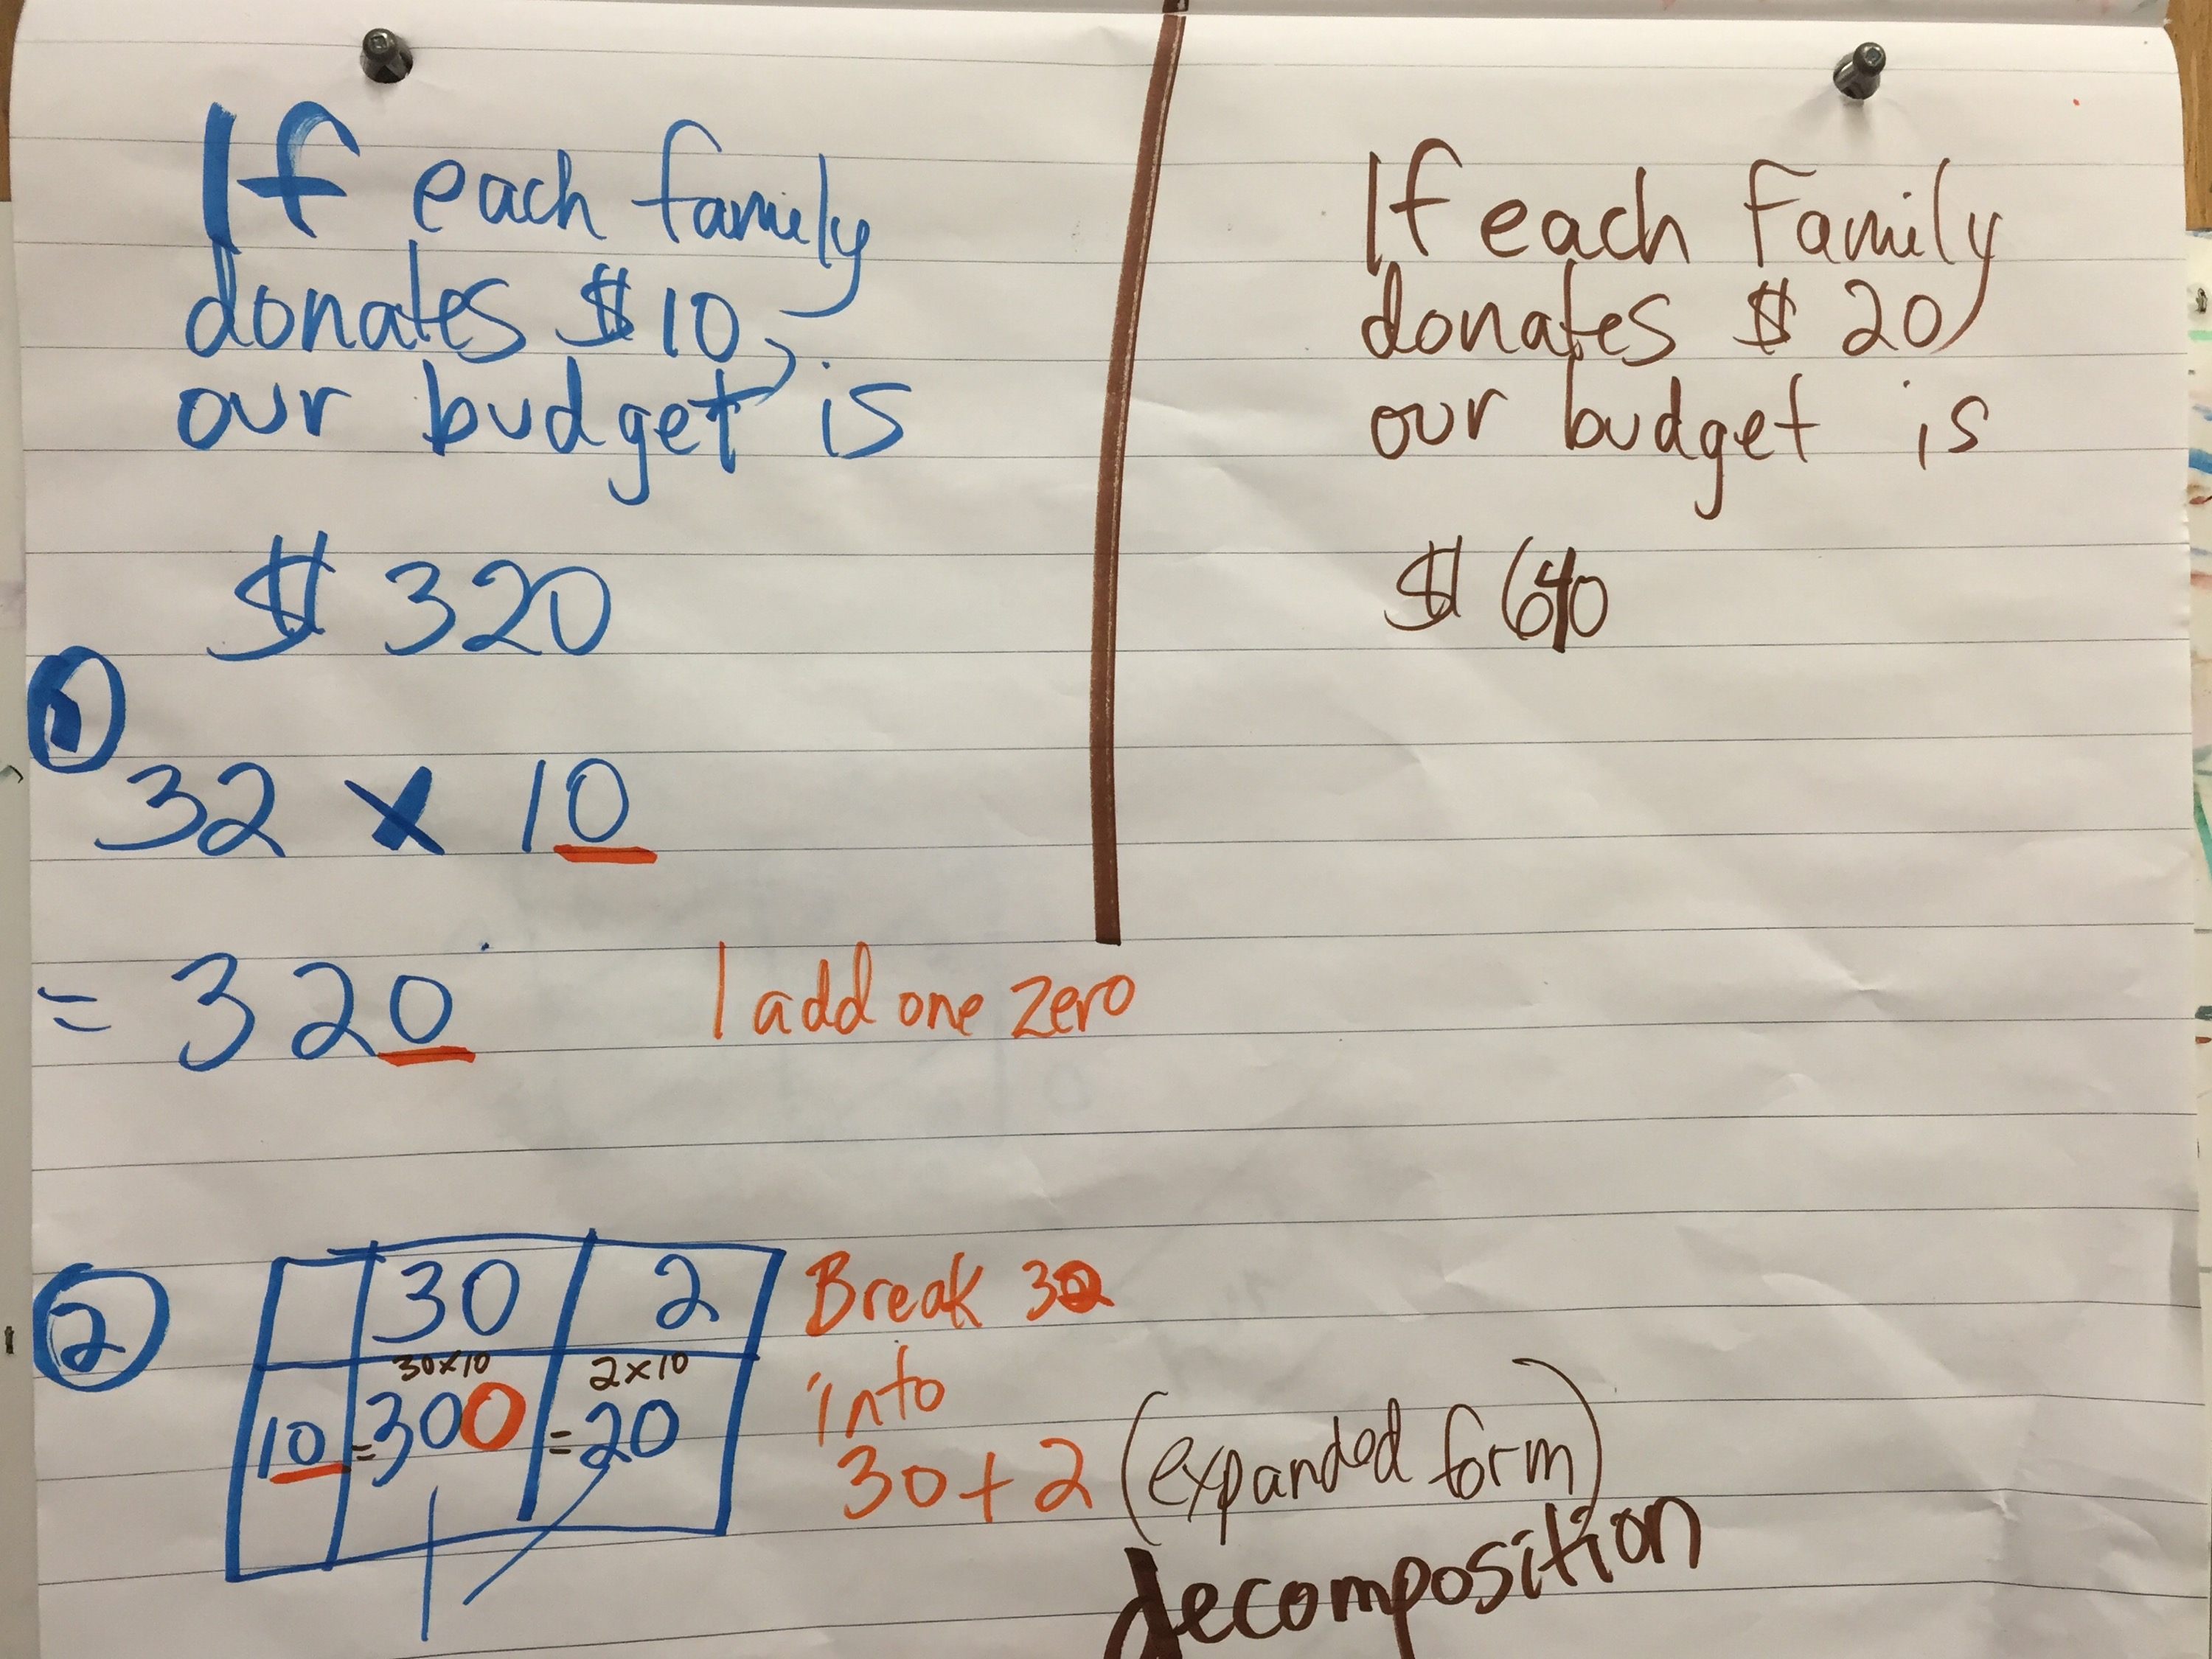 If each family
donates $10,
our budget is
$ 320
1
32 x 10
= 320
I add one zero
If each Family
donates $ 20,
our budget is
$ 640
2
30 2
30x10 2x10
10 =300 =20
Break 32
into
30+2 (expanded form)
decomposition